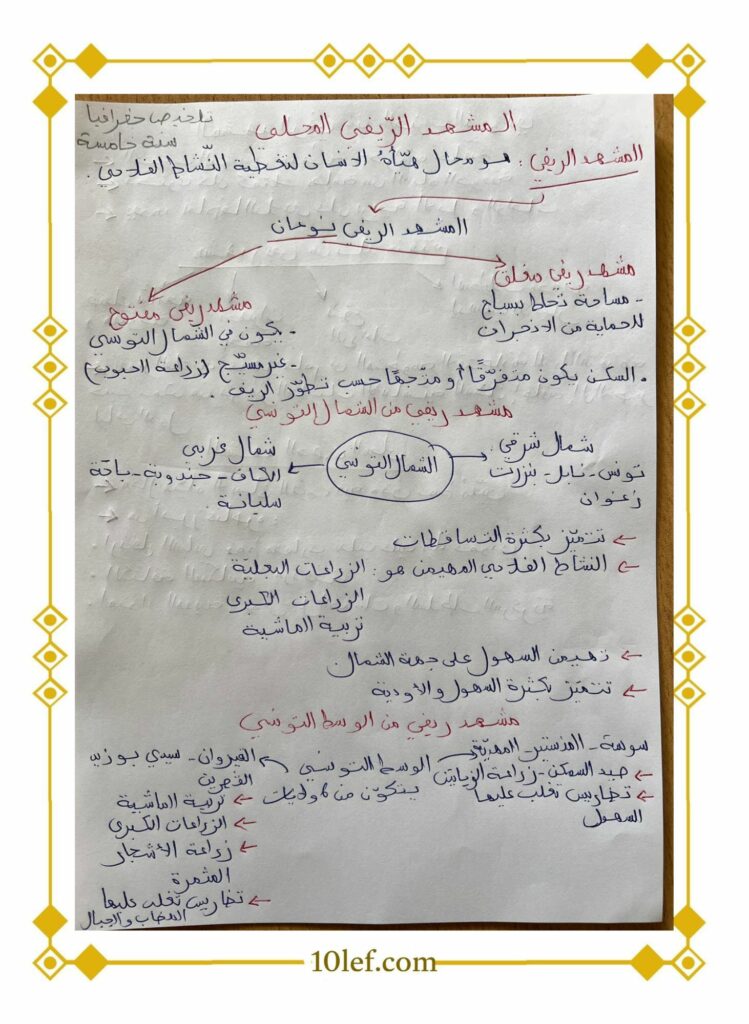 تلخيص جغرافيا
سنة خامسة
المشهد الرّيفي المحلي
المشهد الريفي : هو مجال هيّأه الانسان لتغطية النّشاط الفلاحي .
المشهد الريفي نوعان
مشهد ريفي مغلق
- مساحة تحاط بسياج
للحماية من الانجراف
مشهد ريفي مفتوح
- يكون في الشمال التونسي
- غير مسيّج (زراعة الحبوب)
. السكن يكون متفرّقًا أو مدّمجًا حسب تطوّر الريف .
مشهد ريفي من الشمال التونسي
الشمال التونسي
شمال شرقي
تونس - نابل - بنزرت
زغوان
شمال غربي
الكاف - جندوبة - باجة
سليانة
← تتميّز بكثرة التساقطات
← النشاط الفلاحي المهيمن هو : الزراعات البعلية
الزراعات الكبرى
تربية الماشية
← تهيمن السهول على جهة الشمال
← تتميّز بكثرة السهول والأودية
مشهد ريفي من الوسط التونسي
الوسط التونسي
يتكوّن من 6 ولايات
سوسة - المنستير - المهديّة
← صيد السمك - زراعة الزياتين
← تضاريس تغلب عليها
السهول
القيروان - سيدي بوزيد
القصرين
← تربية الماشية
← الزراعات الكبرى
← زراعة الأشجار
المثمرة
← تضاريس تغلب عليها
الهضاب والجبال
10lef.com